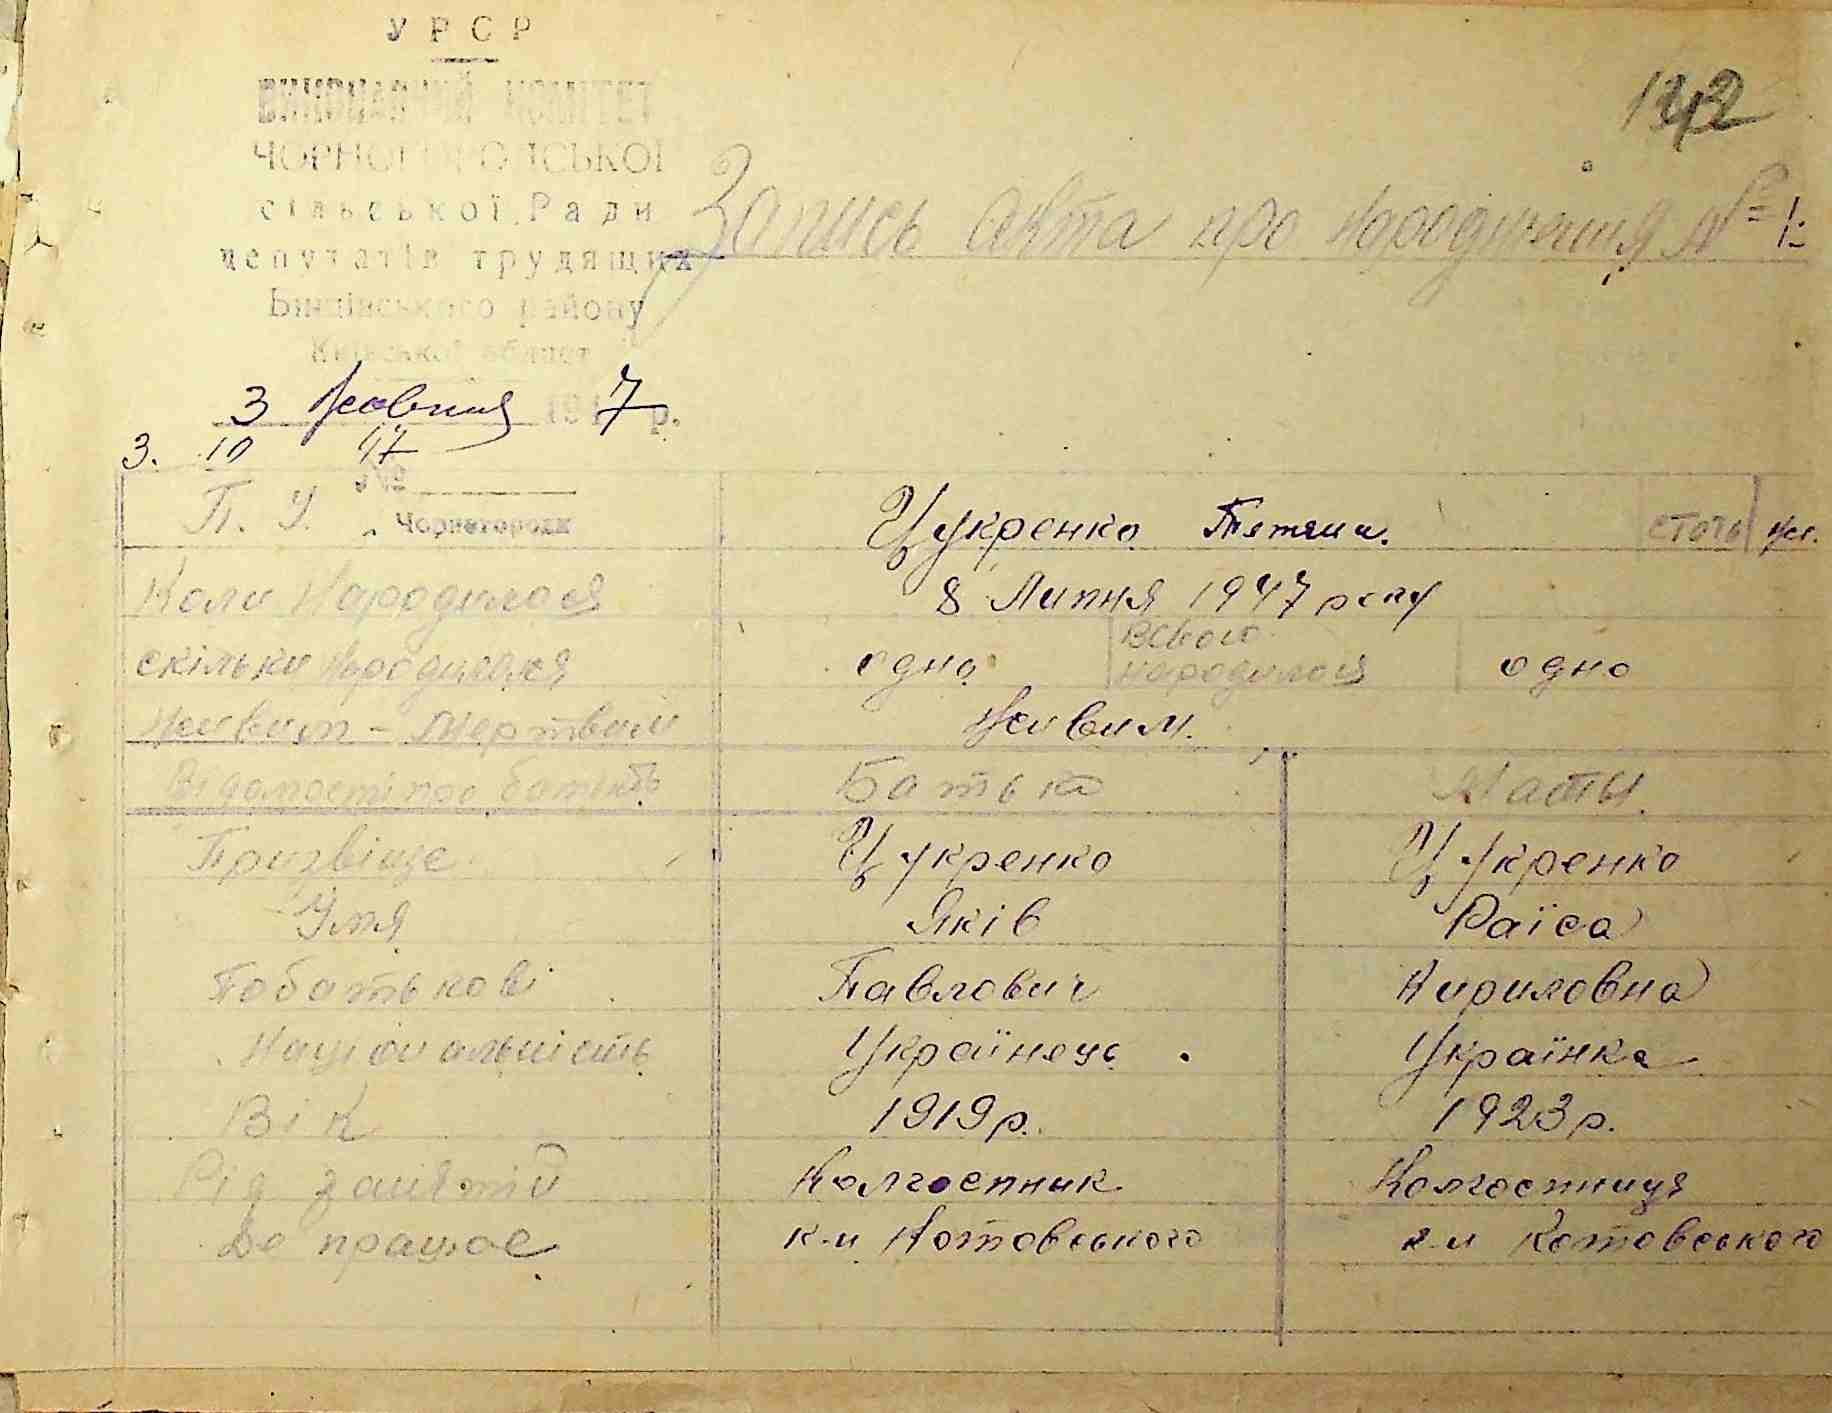 УРСР
ВИКОНАВЧИЙ КОМІТЕТ
ЧОРНОГОРОДСЬКОЇ
сільської Ради
депутатів трудящих
Київської област
132
Запись акта про народження № 1
3 Жовтня 1947 р.
3. 10 47
№
Чорногородк
П. У. Цукренко Тетяна. стать жст.
Коли Народилося 8 Липня 1947 року
скільки Народилося одно Всього народилося одно
Живим - Мертвим Живим.
Відомості про батьків Батько Маты
Призвіще Цукренко Цукренко
Імя Яків Раїса
Побатькові Павлович Кириловна
Національність Українець. Українка
Вік 1919 р. 1923 р.
Рід занятій Колгоспник Колгоспниця
Де працює к-п Котовського к-п Котовського